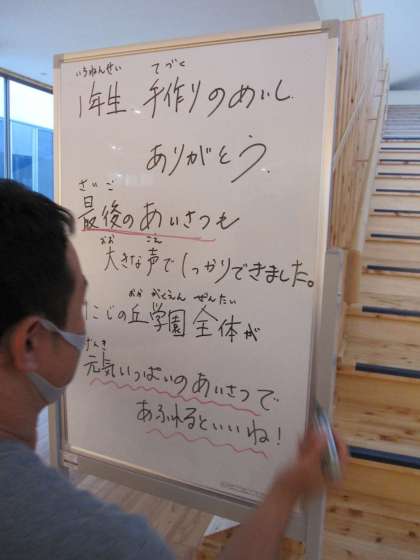 いちねんせい てづく
1年生 手作りのめいし
ありがとう.
さいご
最後のあいさつも
おお こえ
大きな声でしっかりできました。
おか がくえん ぜんたい
にじの丘学園全体が
げんき
元気いっぱいのあいさつで
あふれるといいね!